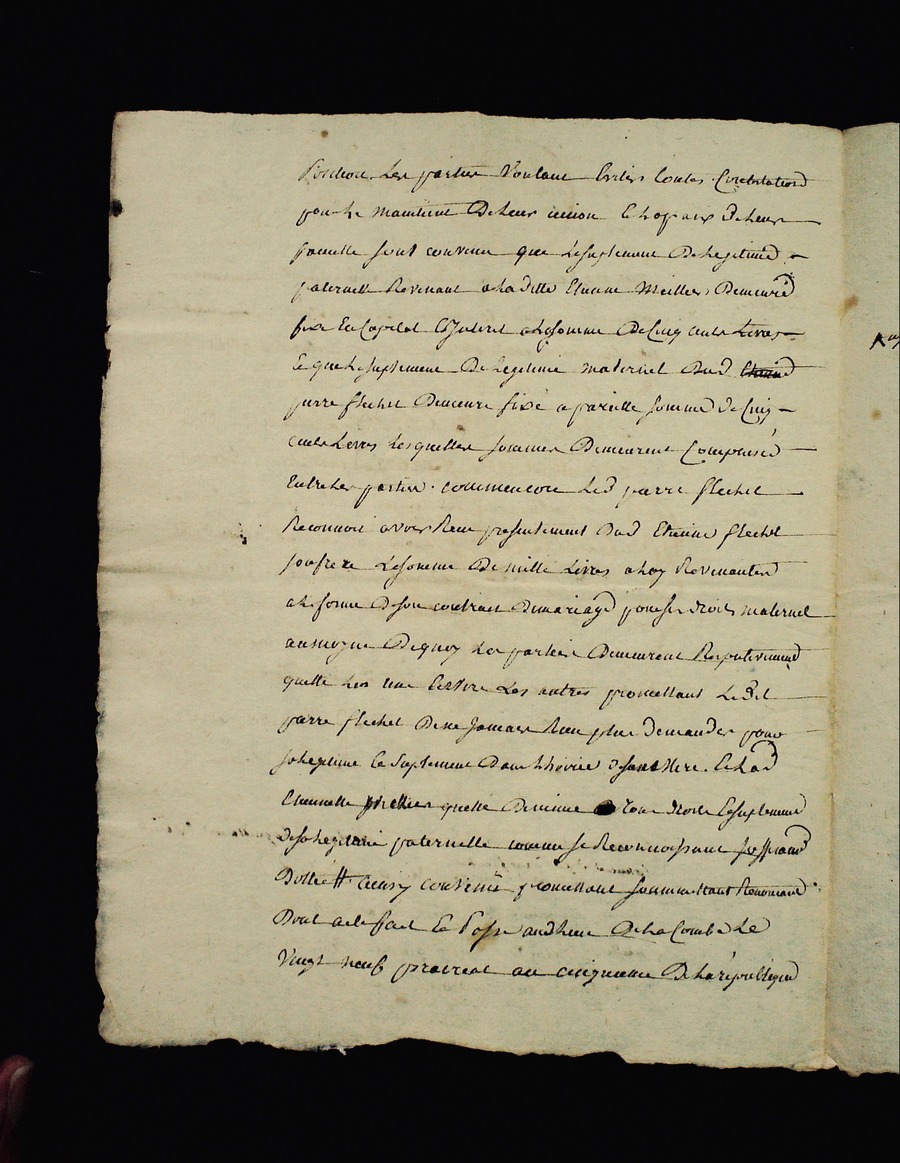 portion. Les parties voulant eviter toutes Contestations
pour le maintient De leur union et la paix De leur
famille sont convenu que le suplement De legitime
paternelle Revenant a la ditte Etienne Demeure
fixé En Capital Et Interet a la somme De Cinq cents Livres
Et que le suplement De legitime maternel Dud
pierre flechet Demeure fixé a pareille somme De Cinq
cents Livres lesquelles sommes Demeurent Compensé
Entre les parties. led pierre flechet
Reconnoit avoir Recu presentement Dud Etienne flechet
son frere la somme De mille Livres a luy Revenantes
a la forme De son contrait De mariage pour ses droits maternel
au moyen De quoy les parties Demeurent Respectivement
quitte les une Envers les autres promettant led
pierre flechet De ne Jamais Rien plus demander pour
sa legitime Et suplement D'ou et la d
quitte De meme le suplement
de sa legitime paternelle comme se Reconnoissant
ainsy convenu promettant soumettant Renoncant
Dont acte fait Et Passé au lieu De la Combe Le
Vingt neuf prairial an cinquieme De la république